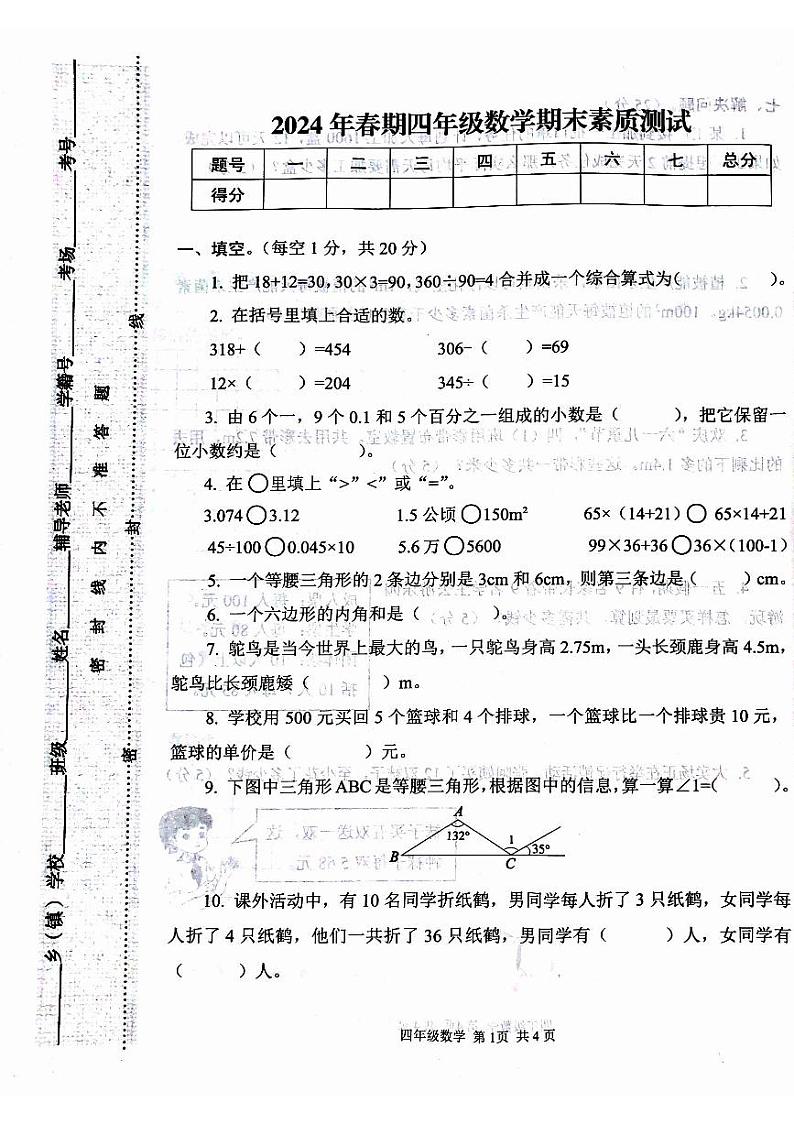 2024年春期四年级数学期末素质测试
题号 一 二 三 四 五 六 七 总分
得分
一、填空。(每空1分，共20分)
1. 把18+12=30,30×3=90,360÷90=4合并成一个综合算式为( )。
2. 在括号里填上合适的数。
318+( )=454 306−( )=69
12×( )=204 345÷( )=15
3. 由6个一，9个0.1和5个百分之一组成的小数是( )，把它保留一
位小数约是( )。
4. 在○里填上“>”<”或“=”。
3.074○3.12 1.5公顷○150m² 65×(14+21)○65×14+21
45÷100○0.045×10 5.6万○5600 99×36+36○36×(100-1)
5. 一个等腰三角形的2条边分别是3cm和6cm，则第三条边是( )cm。
6. 一个六边形的内角和是( )。
7. 鸵鸟是当今世界上最大的鸟，一只鸵鸟身高2.75m，一头长颈鹿身高4.5m，
鸵鸟比长颈鹿矮( )m。
8. 学校用500元买回5个篮球和4个排球，一个篮球比一个排球贵10元，
篮球的单价是( )元。
9. 下图中三角形ABC是等腰三角形,根据图中的信息,算一算∠1=( )。
A
132°
1
35°
B
C
10. 课外活动中，有10名同学折纸鹤，男同学每人折了3只纸鹤，女同学每
人折了4只纸鹤，他们一共折了36只纸鹤，男同学有( )人，女同学有
( )人。
四年级数学 第1页 共4页
乡（镇）学校 班级 姓名 辅导老师 学籍号 考场 考号
密封线内不准答题
密 封 线